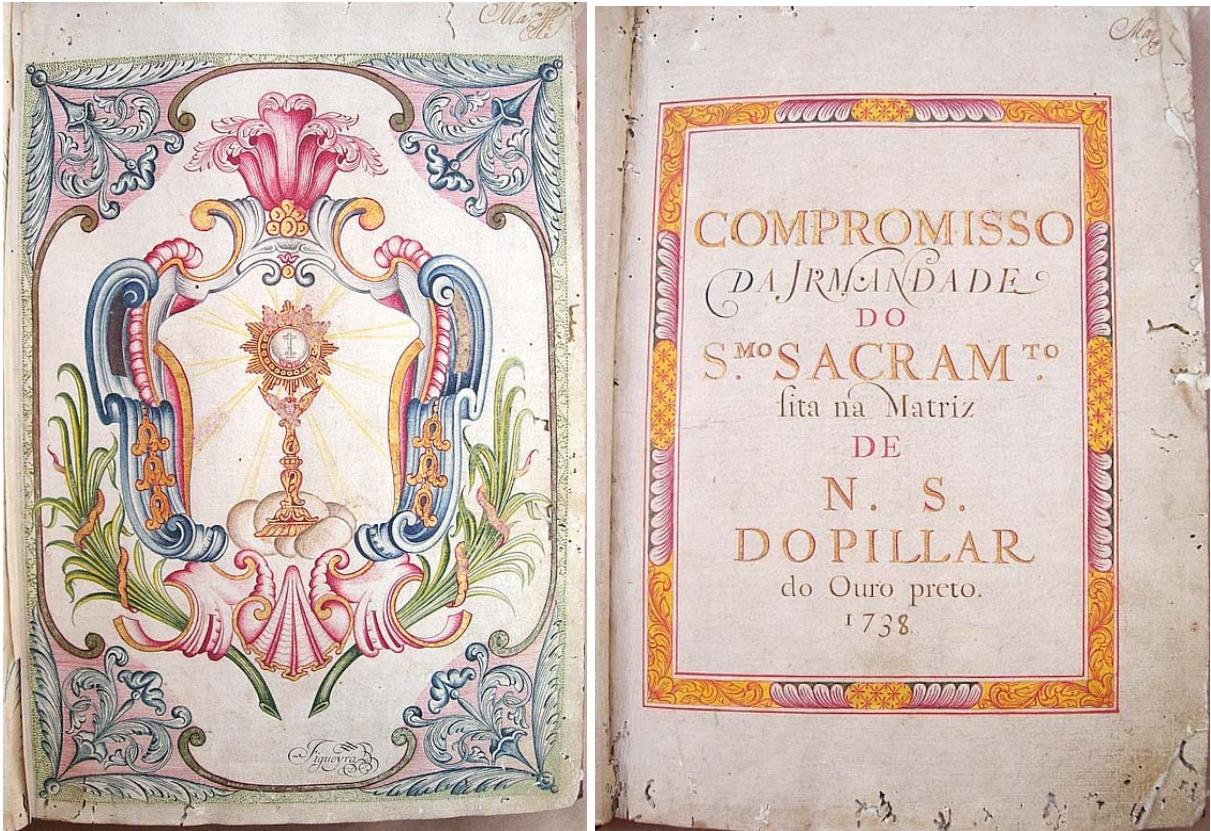 Figueyra
COMPROMISSO
DA JRMANDADE
DO
S.ᴹᴼ SACRAMᵀᴼ.
ſita na Matriz
DE
N. S.
DOPILLAR
do Ouro preto.
1738